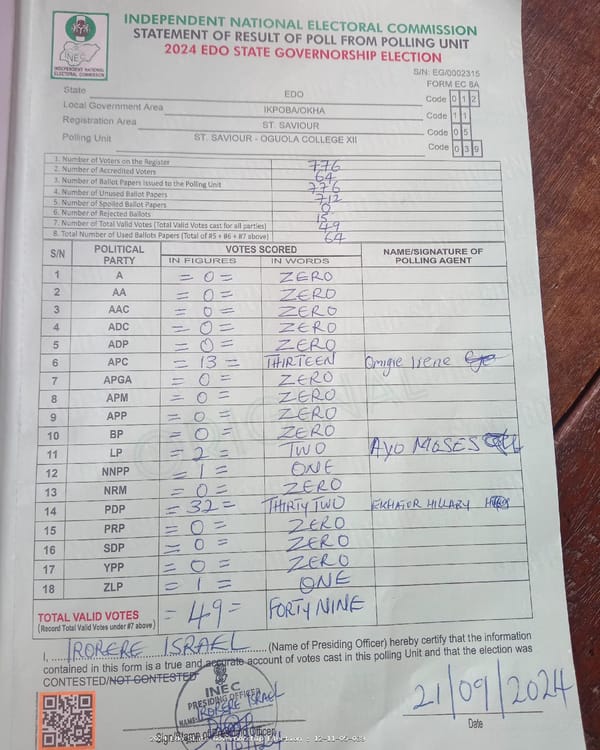 INDEPENDENT NATIONAL ELECTORAL COMMISSION
STATEMENT OF RESULT OF POLL FROM POLLING UNIT
2024 EDO STATE GOVERNORSHIP ELECTION
INEC
INDEPENDENT NATIONAL ELECTORAL COMMISSION
S/N: EG/0002315
FORM EC 8A
State EDO Code 0 1 2
Local Government Area IKPOBA/OKHA Code 1 1
Registration Area ST. SAVIOUR Code 0 5
Polling Unit ST. SAVIOUR - OGUOLA COLLEGE XII Code 0 3 9
1. Number of Voters on the Register 776
2. Number of Accredited Voters 64
3. Number of Ballot Papers Issued to the Polling Unit 776
4. Number of Unused Ballot Papers 712
5. Number of Spoiled Ballot Papers 0
6. Number of Rejected Ballots 15
7. Number of Total Valid Votes (Total Valid Votes cast for all parties) 49
8. Total Number of Used Ballots Papers (Total of #5 + #6 + #7 above) 64
S/N POLITICAL PARTY VOTES SCORED NAME/SIGNATURE OF POLLING AGENT
IN FIGURES IN WORDS
1 A = 0 = ZERO
2 AA = 0 = ZERO
3 AAC = 0 = ZERO
4 ADC = 0 = ZERO
5 ADP = 0 = ZERO
6 APC = 13 = THIRTEEN Omigie Irene
7 APGA = 0 = ZERO
8 APM = 0 = ZERO
9 APP = 0 = ZERO
10 BP = 0 = ZERO
11 LP = 2 = TWO AYO MOSES
12 NNPP = 1 = ONE
13 NRM = 0 = ZERO
14 PDP = 32 = THIRTY TWO EKHATOR HILLARY
15 PRP = 0 = ZERO
16 SDP = 0 = ZERO
17 YPP = 0 = ZERO
18 ZLP = 1 = ONE
TOTAL VALID VOTES = 49 = FORTY NINE
(Record Total Valid Votes under #7 above)
I, IRORERE ISRAEL (Name of Presiding Officer) hereby certify that the information
contained in this form is a true and accurate account of votes cast in this polling Unit and that the election was
CONTESTED/NOT CONTESTED
INEC
PRESIDING OFFICER
IRORERE ISRAEL
21/09/2024
Date